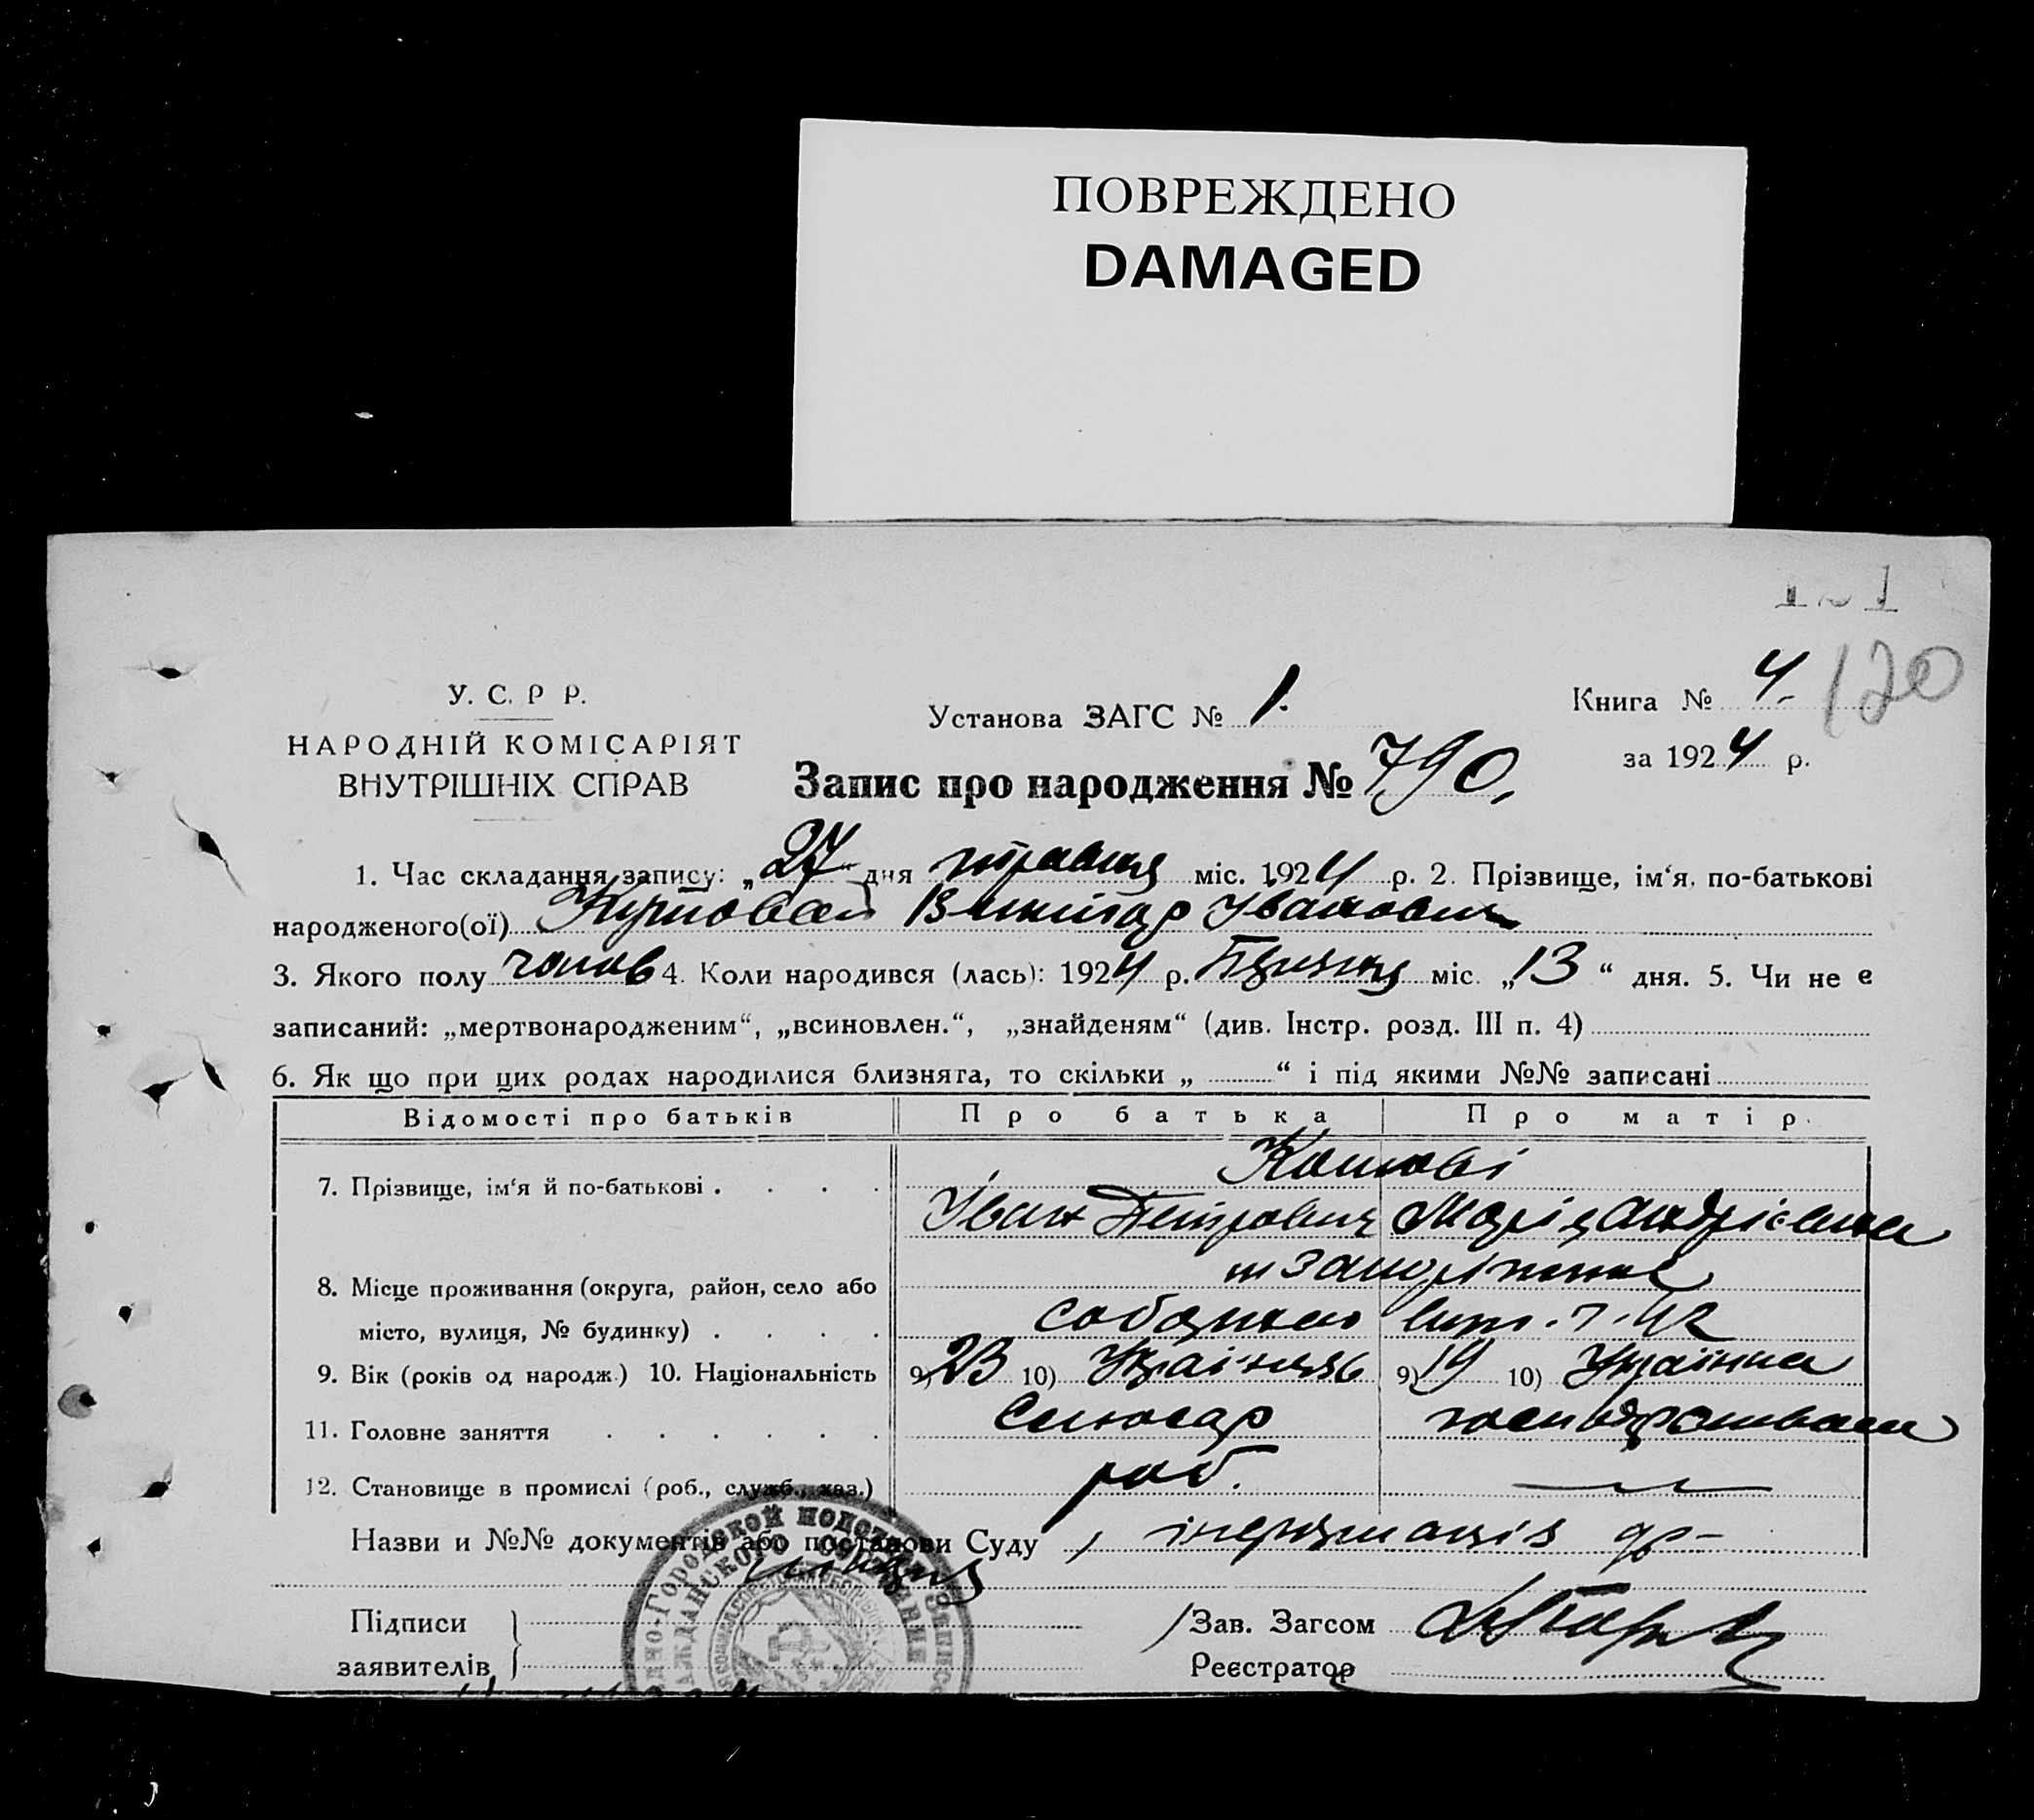 ПОВРЕЖДЕНО
DAMAGED
120
У. С. Р Р.
НАРОДНІЙ КОМІСАРІЯТ
ВНУТРІШНІХ СПРАВ
Установа ЗАГС № 1.
Книга № 4.
за 1924 р.
Запис про народження № 790.
1. Час складання запису: „27“ дня травня міс. 1924 р. 2. Прізвище, ім‘я, по-батькові
народженого(ої) Іванович
3. Якого полу чолов 4. Коли народився (лась): 1924 р. міс. „13“ дня. 5. Чи не є
записаний: „мертвонародженим“, „всиновлен.“, „знайденям“ (див. Інстр. розд. III п. 4)
6. Як що при цих родах народилися близняга, то скільки „ “ і під якими №№ записані
Відомості про батьків Про батька Про матір.
7. Прізвище, ім‘я й по-батькові
Іван Петрович Марія Андрієвна
8. Місце проживання (округа, район, село або
м Запоріжжє
місто, вулиця, № будинку) Соборная вул. 42
9. Вік (років од народж.) 10. Національність 9) 23 10) Украінець 9) 19 10) Українка
11. Головне заняття Слюсар
12. Становище в промислі (роб., служб., хаз.) роб.
Назви и №№ документів або постанови Суду
Підписи
заявителів
Зав. Загсом
Реєстратор